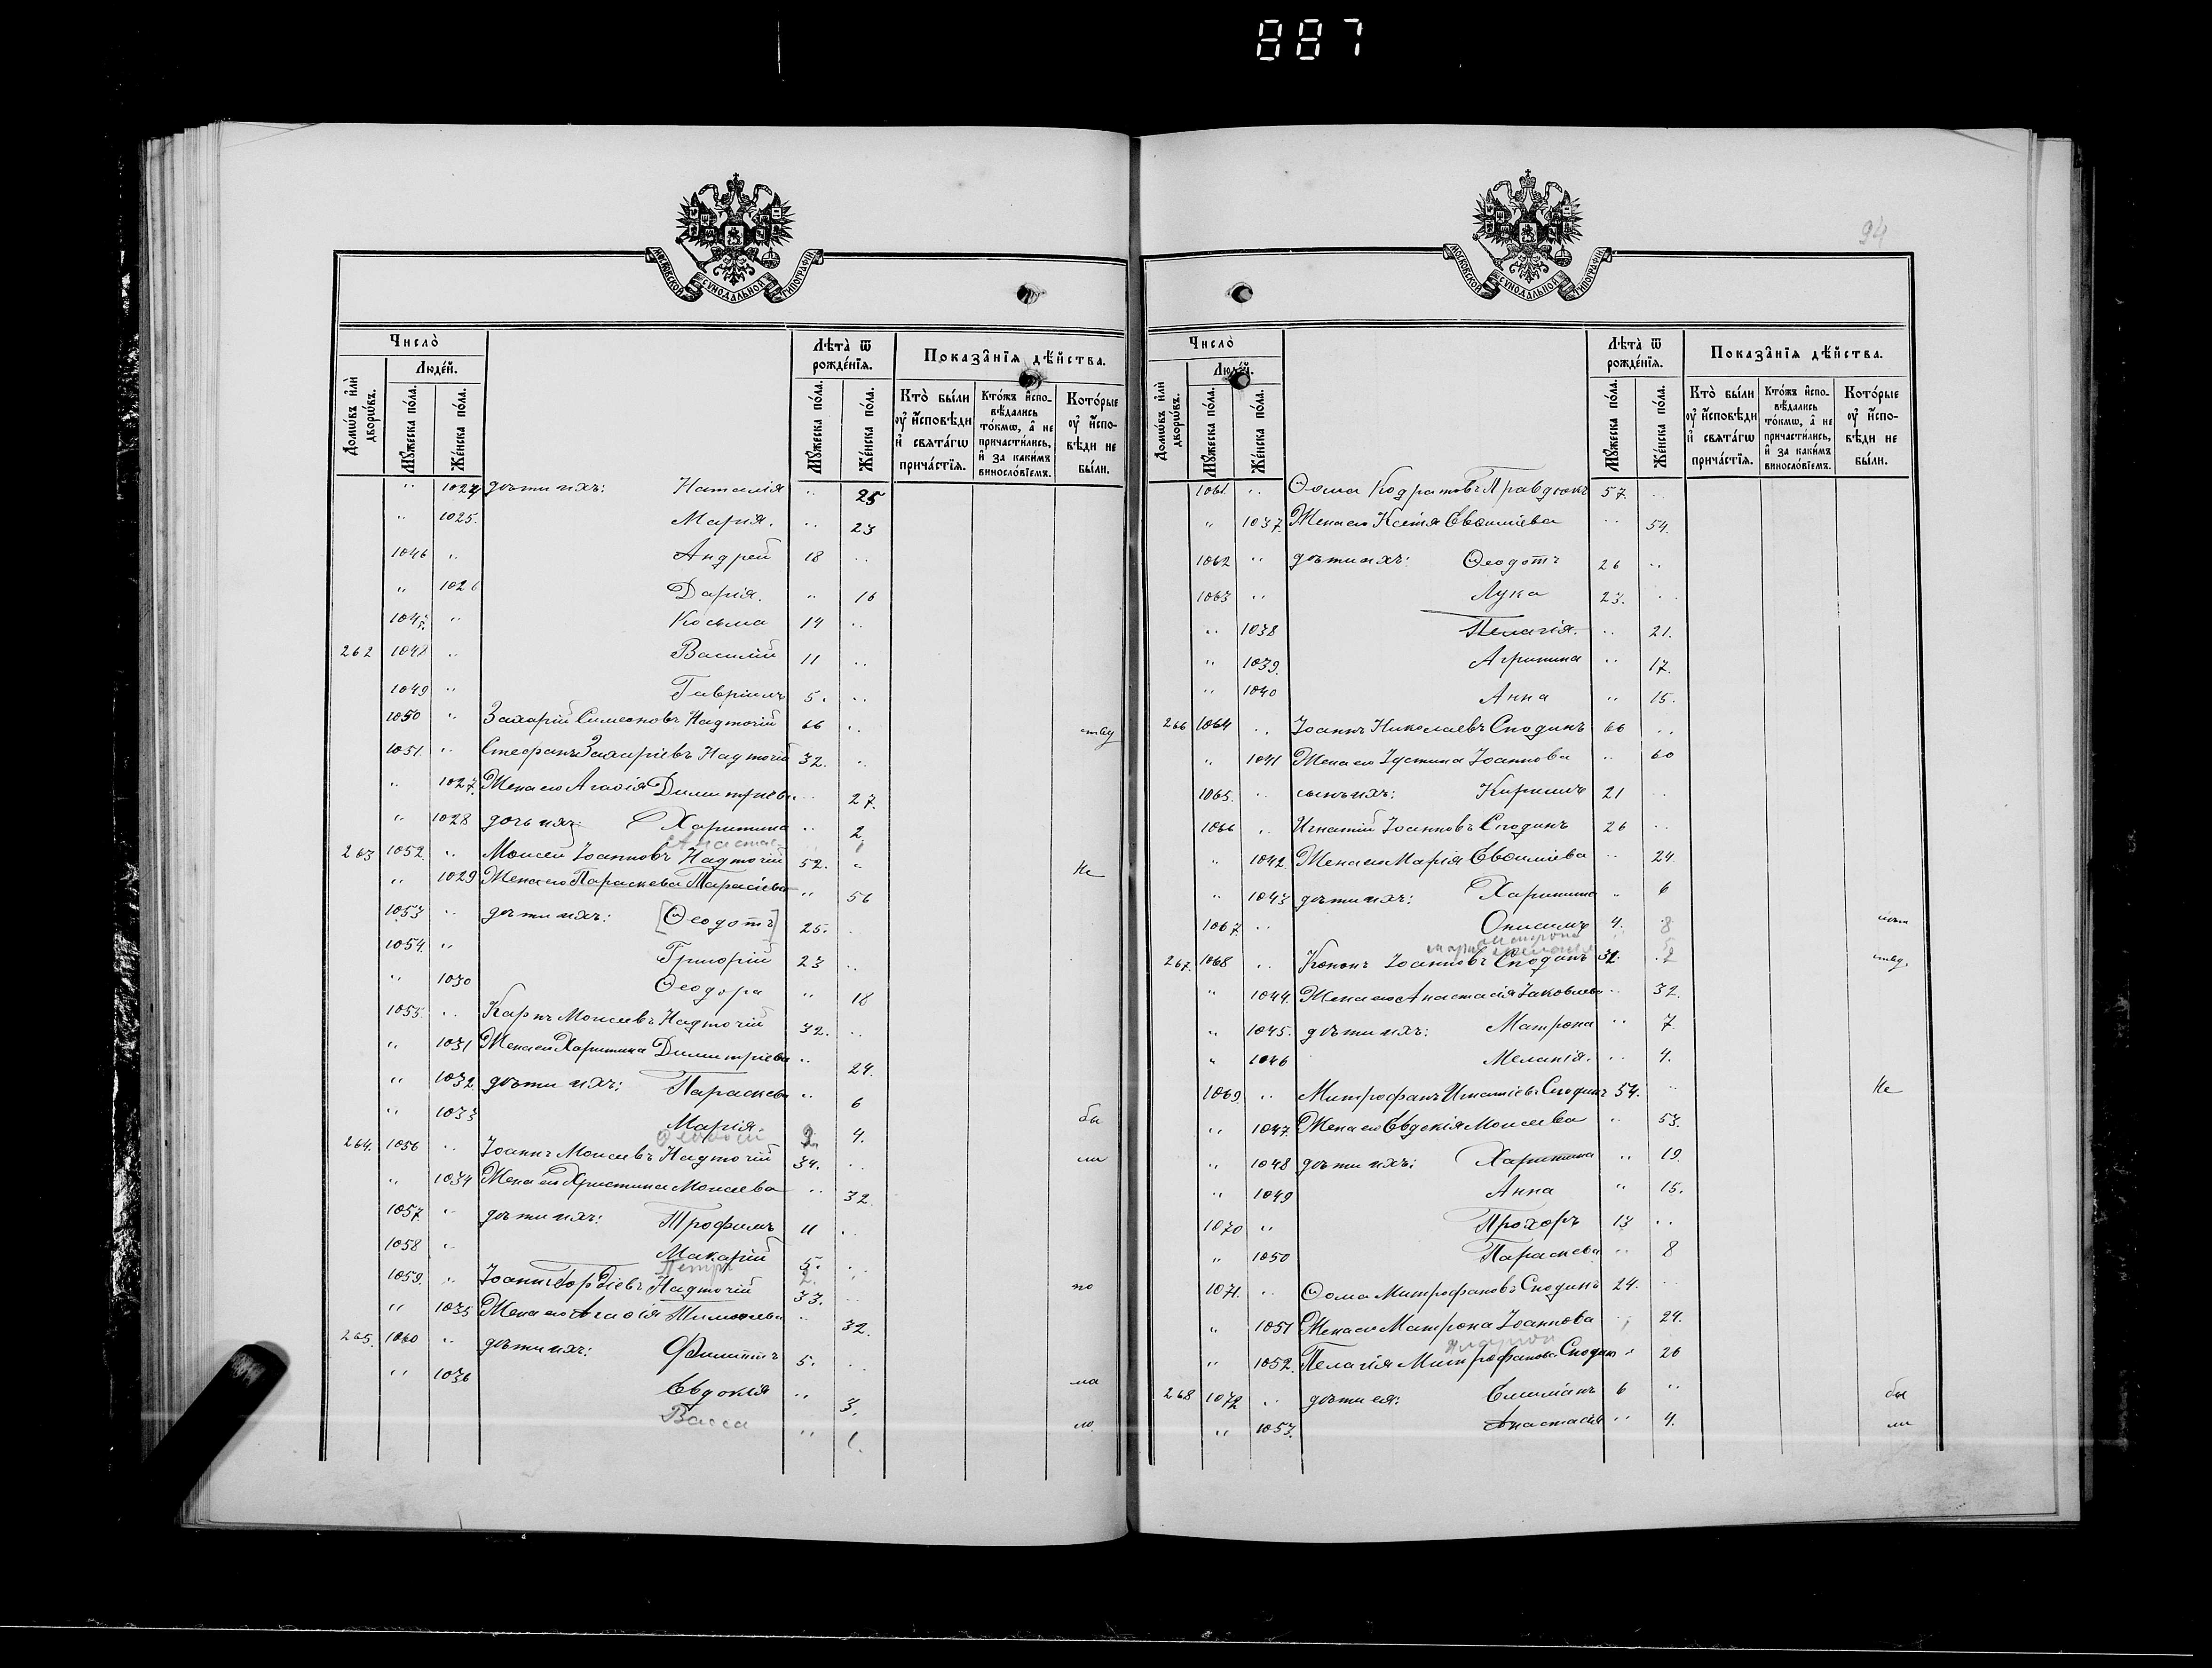 887
94
МОСКОВСКОЙ СѴНОДАЛЬНОЙ ТИПОГРАФІИ
Число̀
Людє́й.
Домѡ́въ и҆лѝ дворѡ́въ.
Мꙋ́жеска по́ла.
Же́нска по́ла.
Лѣ́та ѿ рожде́нїѧ.
Мꙋ́жеска по́ла.
Же́нска по́ла.
Показа̑нїѧ дѣ́йства.
Кто̀ бы́ли ᲂу҆ и҆сповѣ́ди и҆ свѧта́гѡ прича́стїѧ.
Кто́жъ и҆сповѣ́дались то́кмѡ, а҆ не причасти́лись, и҆ за каки́мъ винослові́емъ.
Кото́рые ᲂу҆ и҆сповѣ́ди не бы́ли.
" 1024 дѣти ихъ: Наталія " 25
" 1025. Марія. " 23
1046 " Андрей 18 "
" 1026 Дарія. " 16
1047. " Косьма 14 "
262 1048 " Василій 11 "
1049 " Гавріилъ 5. "
1050 " Захарій Симеоновъ Надточій 66 "
1051. " Стефанъ Захаріевъ Надточій 32. "
" 1027. Жена его Агафія Димитріева " 27.
" 1028 дочь ихъ: Харитина " 2
263 1052. " Моисей Іоанновъ Надточій 52. " Не
" 1029 Жена его Параскева Тарасіева " 56
1053 " дѣти ихъ: [Ѳеодотъ] 25. "
1054. " Григорій 23 "
" 1030 Ѳеодора " 18
1055. " Карпъ Моисеевъ Надточій 32. "
" 1031 Жена его Харитина Димитріева " 24.
" 1032. дѣти ихъ: Параскева " 6
" 1033 Марія. " 4. бы
264. 1056 " Іоаннъ Моисеевъ Надточій 34. " ли
" 1034 Жена его Христина Моисеева " 32
1057. " дѣти ихъ: Трофимъ 11 "
1058 " Макарій 5. "
Петръ 2.
1059. " Іоаннъ Гордіевъ Надточій 33. " по
" 1035 Жена его Агафія Тимоѳеева " 32.
265. 1060 " дѣти ихъ: Филиппъ 5. "
" 1036 Евдокія " 3. ма
Васса " 1. ло.
Число̀
Людє́й.
Домѡ́въ и҆лѝ дворѡ́въ.
Мꙋ́жеска по́ла.
Же́нска по́ла.
Лѣ́та ѿ рожде́нїѧ.
Мꙋ́жеска по́ла.
Же́нска по́ла.
Показа̑нїѧ дѣ́йства.
Кто̀ бы́ли ᲂу҆ и҆сповѣ́ди и҆ свѧта́гѡ прича́стїѧ.
Кто́жъ и҆сповѣ́дались то́кмѡ, а҆ не причасти́лись, и҆ за каки́мъ винослові́емъ.
Кото́рые ᲂу҆ и҆сповѣ́ди не бы́ли.
1061. " Ѳома Кодратовъ Правдюкъ 57. "
" 1037. Жена его Ксенія Евѳиміева " 54.
1062 " дѣти ихъ: Ѳеодотъ 26 "
1063 " Лука 23. "
" 1038 Пелагія. " 21.
" 1039. Агрипина " 17.
" 1040 Анна " 15.
266 1064 " Іоаннъ Николаевъ Сподинъ 66 "
" 1041 Жена его Іустина Іоаннова " 60
1065. " сынъ ихъ: Кириллъ 21 "
1066 " Игнатій Іоанновъ Сподинъ 26 "
" 1042 Жена его Марія Евѳиміева " 24.
" 1043 дѣти ихъ: Харитина " 6
1067. " Онисимъ 4. 8
267. 1068 " Кононъ Іоанновъ Сподинъ 32.
" 1044. Жена его Анастасія Іаковлева " 32.
" 1045. дѣти ихъ: Матрона " 7.
" 1046 Меланія. " 4.
1069. " Митрофанъ Игнатіевъ Сподинъ 54. " Не
" 1047. Жена его Евдокія Моисеева " 53.
" 1048 дѣти ихъ: Харитина " 19.
" 1049 Анна " 15.
1070 " Прохоръ 13 "
" 1050 Параскева " 8
1071. " Ѳома Митрофановъ Сподинъ 24. "
" 1051 Жена его Матрона Іоаннова " 24.
" 1052. Пелагія Митрофанова Сподинъ " 26
268 1072 " дѣти ея: Емиліанъ 6 " бы
" 1053. Анастасія " 4. ли